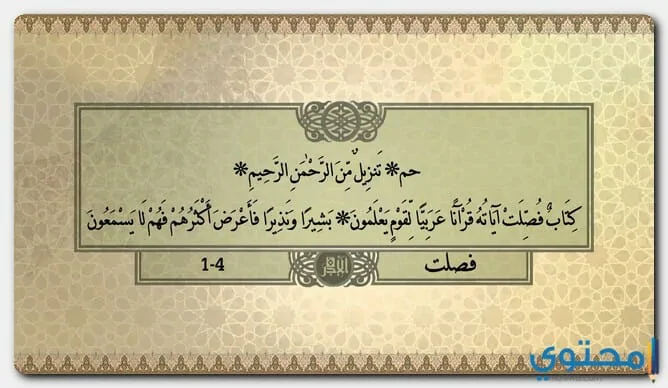 حم* تَنزِيلٌ مِّنَ الرَّحْمَنِ الرَّحِيمِ*
كِتَابٌ فُصِّلَتْ آيَاتُهُ قُرْآنًا عَرَبِيًّا لِّقَوْمٍ يَعْلَمُونَ* بَشِيرًا وَنَذِيرًا فَأَعْرَضَ أَكْثَرُهُمْ فَهُمْ لَا يَسْمَعُونَ
فصلت
1-4
محتوى